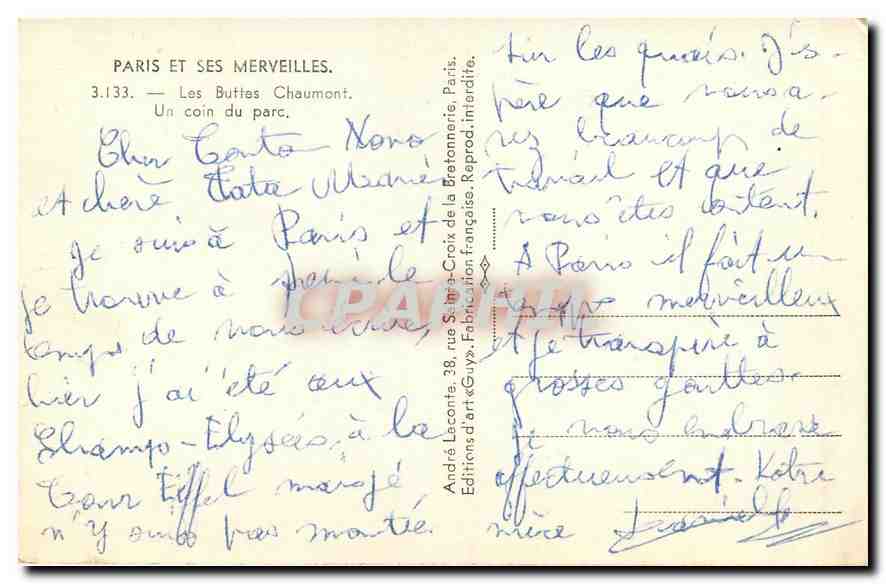 PARIS ET SES MERVEILLES.
3.133. — Les Buttes Chaumont.
Un coin du parc.
Cher Tonto Nono
et chère Tata Mémé
Je suis à Paris et
je trouve à peine le
temps de vous écrire,
hier j'ai été aux
Champs-Elysées, à la
Tour Eiffel mais je
n'y suis pas montée.
André Leconte, 38, rue Sainte-Croix de la Bretonnerie, Paris.
Editions d'art «Guy». Fabrication française. Reprod. interdite.
sur les quais. J'es-
père que vous a-
vez beaucoup de
travail et que
vous êtes content.
A Paris il fait un
temps merveilleux
et je transpire à
grosses gouttes.
Je vous embrasse
affectueusement. Votre
nièce
CPARAMA